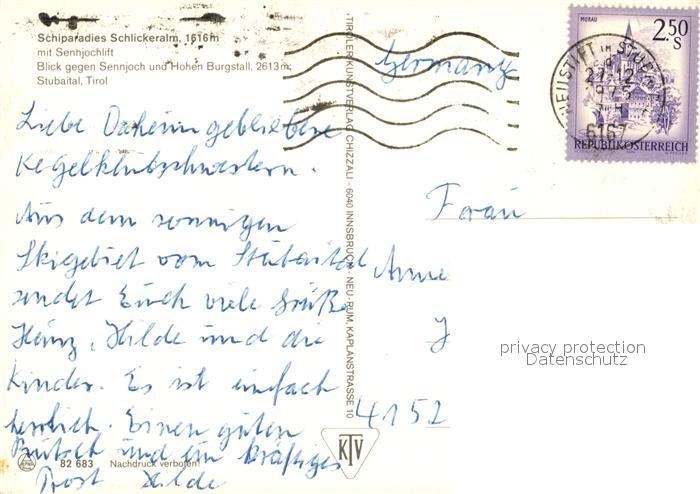 Schiparadies Schlickeralm, 1616m
mit Sennjochlift
Blick gegen Sennjoch und Hohen Burgstall, 2613m;
Stubaital, Tirol
Liebe Daheimgebliebene
Kegelklubschwestern.
Aus dem sonnigen
Skigebiet vom Stubaital
sendet Euch viele Grüße
Heinz, Hilde und die
Kinder. Es ist einfach
herrlich. Einen guten
Rutsch und ein kräftiges
Prost Hilde
82 683 Nachdruck verboten!
TIROLER KUNSTVERLAG CHIZZALI · 6040 INNSBRUCK · NEU-RUM, KAPLANSTRASSE 10
KTV
Germany
MURAU
2.50
S
REPUBLIK ÖSTERREICH
NEUSTIFT IM STUBAITAL
27.12
1975
6167
Frau
Anne
J
4152
privacy protection
Datenschutz